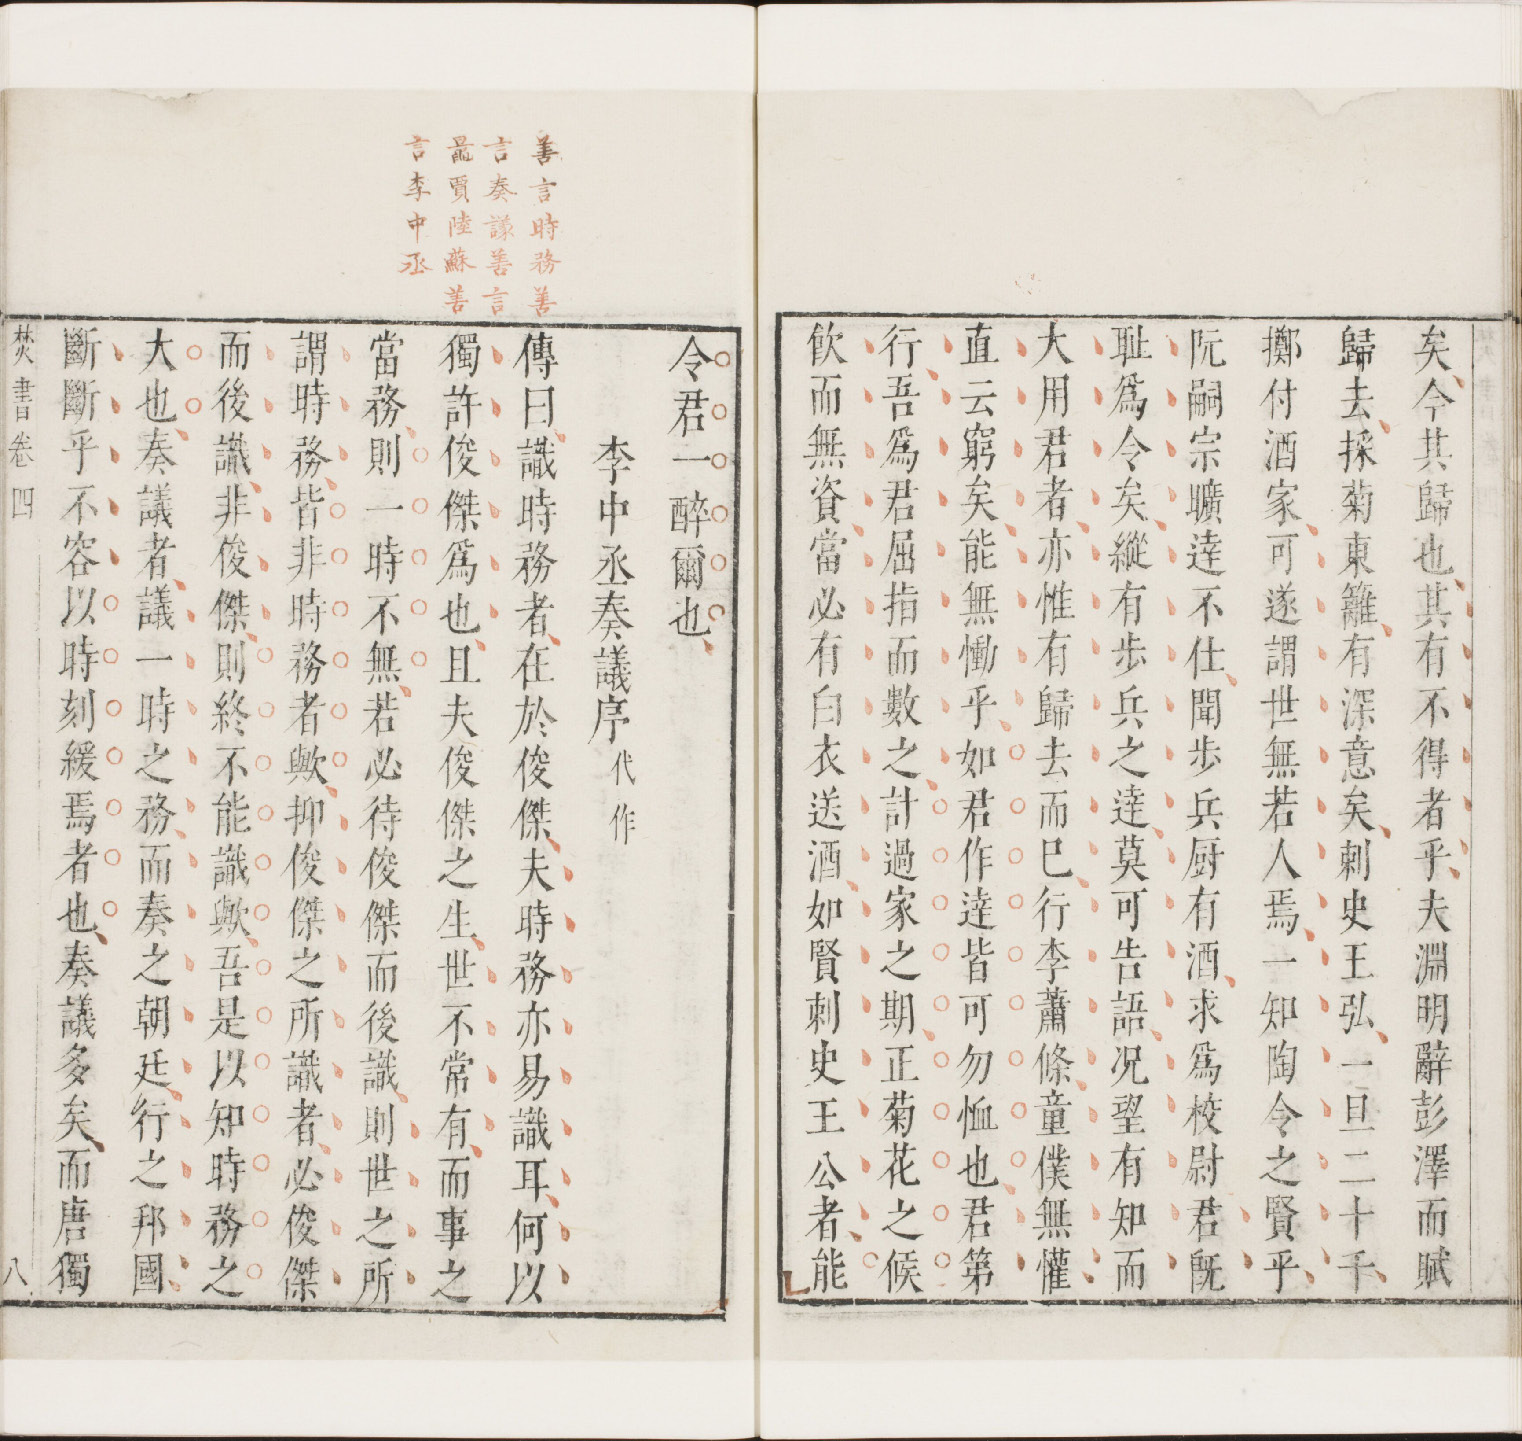 矣今其歸也其有不得者乎夫淵明辭彭澤而賦
歸去採菊東籬有深意矣刺史王弘一旦二十千
擲付酒家可遂謂世無若人焉一知陶令之賢乎
阮嗣宗曠達不仕聞步兵厨有酒求爲校尉君旣
耻爲令矣縱有步兵之達莫可告語况望有知而
大用君者亦惟有歸去而巳行李蕭條童僕無懽
直云窮矣能無慟乎如君作達皆可勿恤也君第
行吾爲君屈指而數之計過家之期正菊花之候
飲而無資當必有白衣送酒如賢刺史王公者能
令君一醉爾也
李中丞奏議序代作
善言時務善
言奏議善言
晁賈陸蘇善
言李中丞
傳曰識時務者在於俊傑夫時務亦易識耳何以
獨許俊傑爲也且夫俊傑之生世不常有而事之
當務則一時不無若必待俊傑而後識則世之所
謂時務皆非時務者歟抑俊傑之所識者必俊傑
而後識非俊傑則終不能識歟吾是以知時務之
大也奏議者議一時之務而奏之朝廷行之邦國
斷斷乎不容以時刻緩焉者也奏議多矣而唐獨
焚書卷四
八